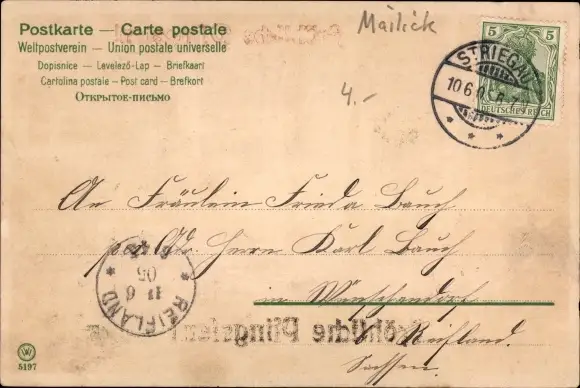 Postkarte — Carte postale
Weltpostverein – Union postale universelle
Dopisnice – Levelező-Lap – Briefkaart
Cartolina postale – Post card – Brefkort
Открытое-письмо
Mailick
4.-
5 5
DEUTSCHES REICH
STRIEGAU
10 6 0
An Fräulein Frieda Bauch
Herrn Karl Bauch
in Wünschendorf
b/ Reifland.
Sachsen.
REIFLAND
11 6
05
Fröhliche Pfingsten!
W
5197